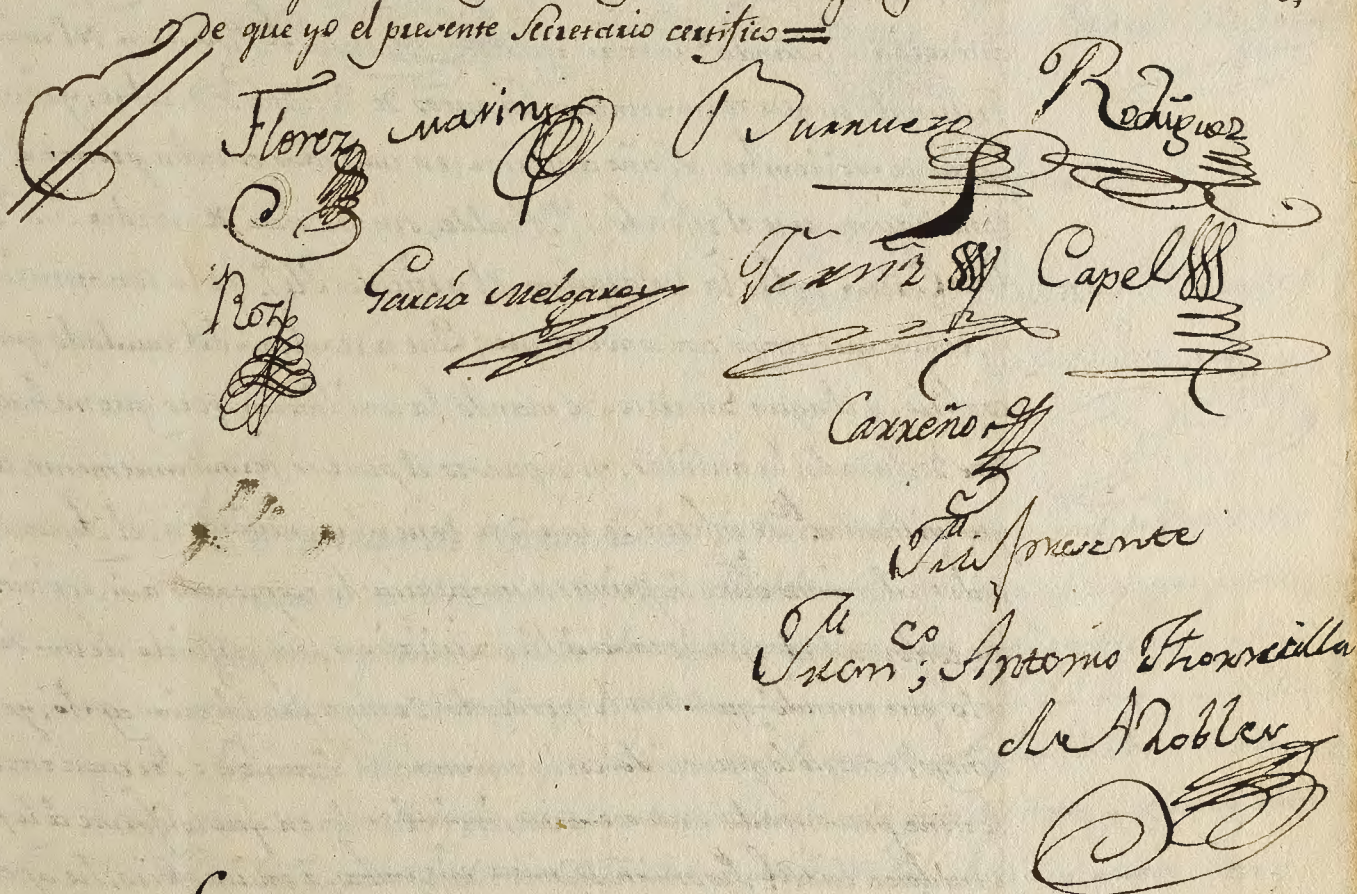 de que yo el presente Secretario certifico =
Florez Marin Burruezo Rodrig̃uez
Roz García Melgarejo Ferñz Capel
Carreño
Fui presente
Franco; Antonio Thorrecilla
de Robles